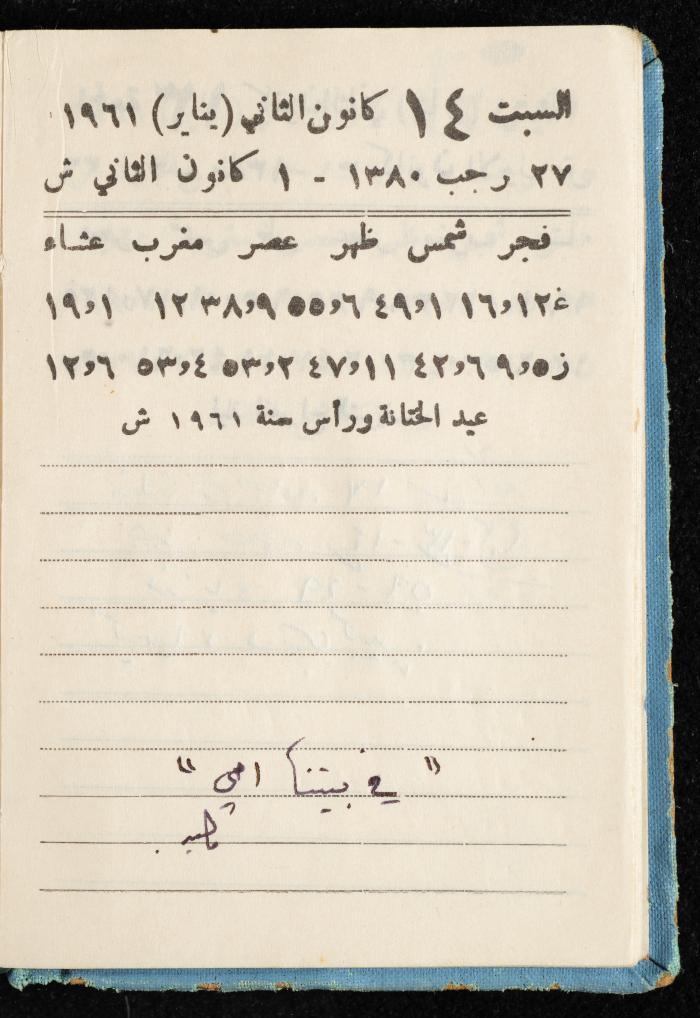 السبت ١٤ كانون الثاني (يناير) ١٩٦١
٢٧ رجب ١٣٨٠ - ١ كانون الثاني ش
فجر شمس ظهر عصر مغرب عشاء
غ١٢و١٦ ١و٤٩ ٦و٥٥ ٩و٣٨ ١٢ ١و١٩
ز٥و٩ ٦و٤٢ ١١و٤٧ ٢و٥٣ ٤و٥٣ ٦و١٢
عيد الختانة ورأس سنة ١٩٦١ ش
" في بيتنا امي "